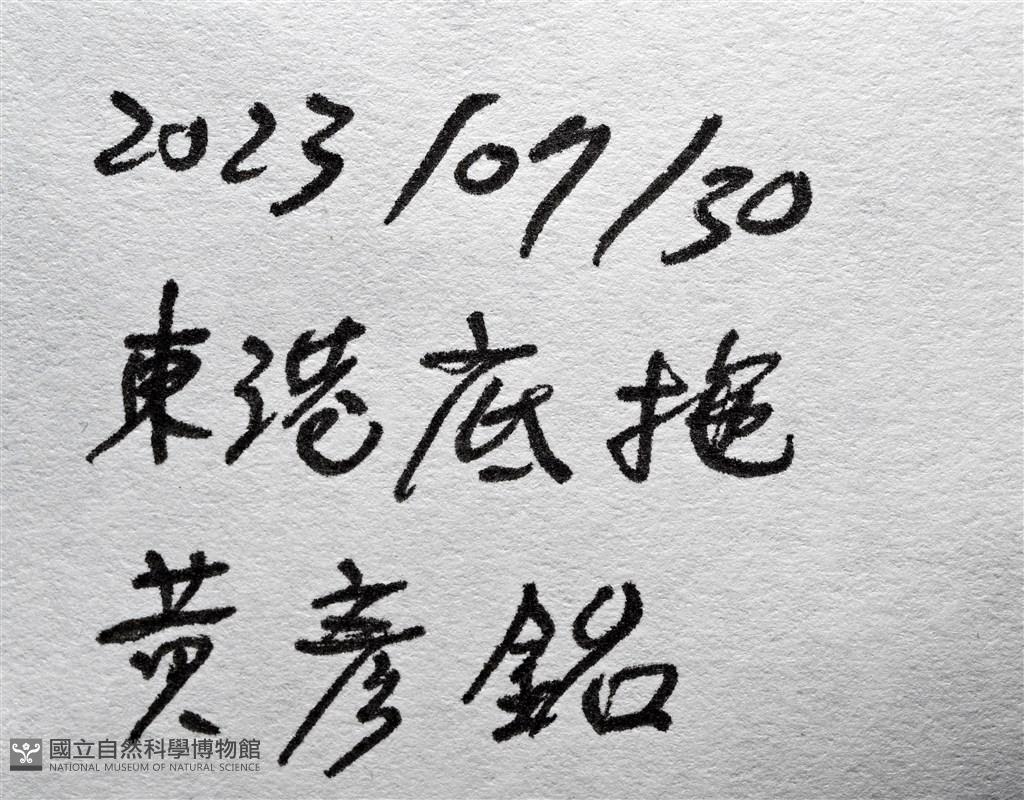 2023/07/30
東港底拖
黃彥銘
國立自然科學博物館
NATIONAL MUSEUM OF NATURAL SCIENCE